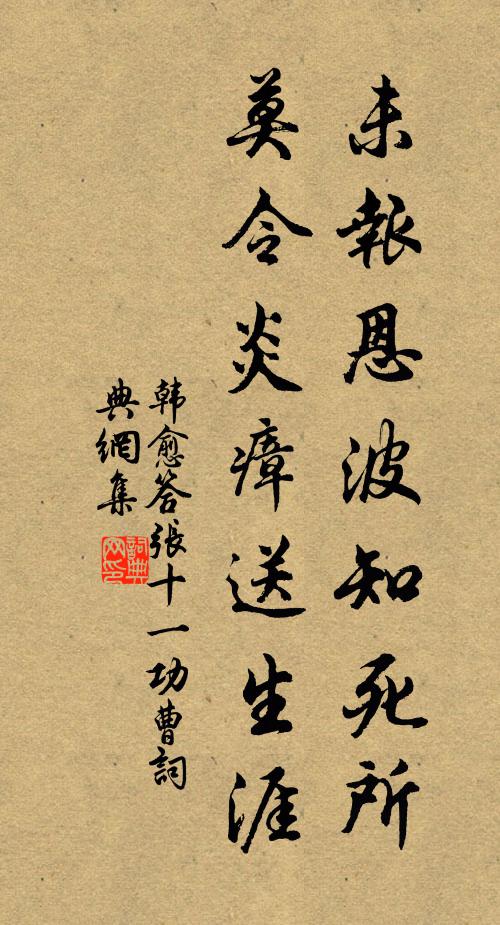 未報恩波知死所
莫令炎瘴送生涯
韩愈答張十一功曹詞
典網集
詞典
网印